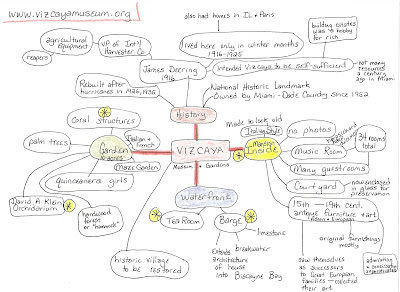 www.vizcayamuseum.org
also had homes in IL + Paris
building estates
was a hobby
for rich
agricultural
equipment
VP of Int'l
Harvester Co
reapers
lived here only in winter months
1916-1925
James Deering
1916
intended Vizcaya to be self-sufficient
not many
resources
a century
ago in Miami
Rebuilt after
hurricanes in 1926, 1935
National Historic Landmark
Owned by Miami-Dade Country since 1952
History
Coral
Structures
Italian +
French
made to look old
Italian Style
no photos
palm trees
Garden
10 acres
VIZCAYA
Museum + Gardens
Mansion
Inside
Music Room
34 rooms
total
Maze Garden
Many guestrooms
quinceanera girls
Courtyard
now enclosed
in glass for
preservation
David A. Klein
Orchidarium
Waterfront
hardwood
forest
or "hammock"
Tea Room
Barge
limestone
15th - 19th cent.
antique furniture + art
original furnishings
mostly
breakwater
Extends
architecture
of house
into Biscayne Bay
historic village
to be restored
saw themselves
as successors
to Great European
families - collected
their art